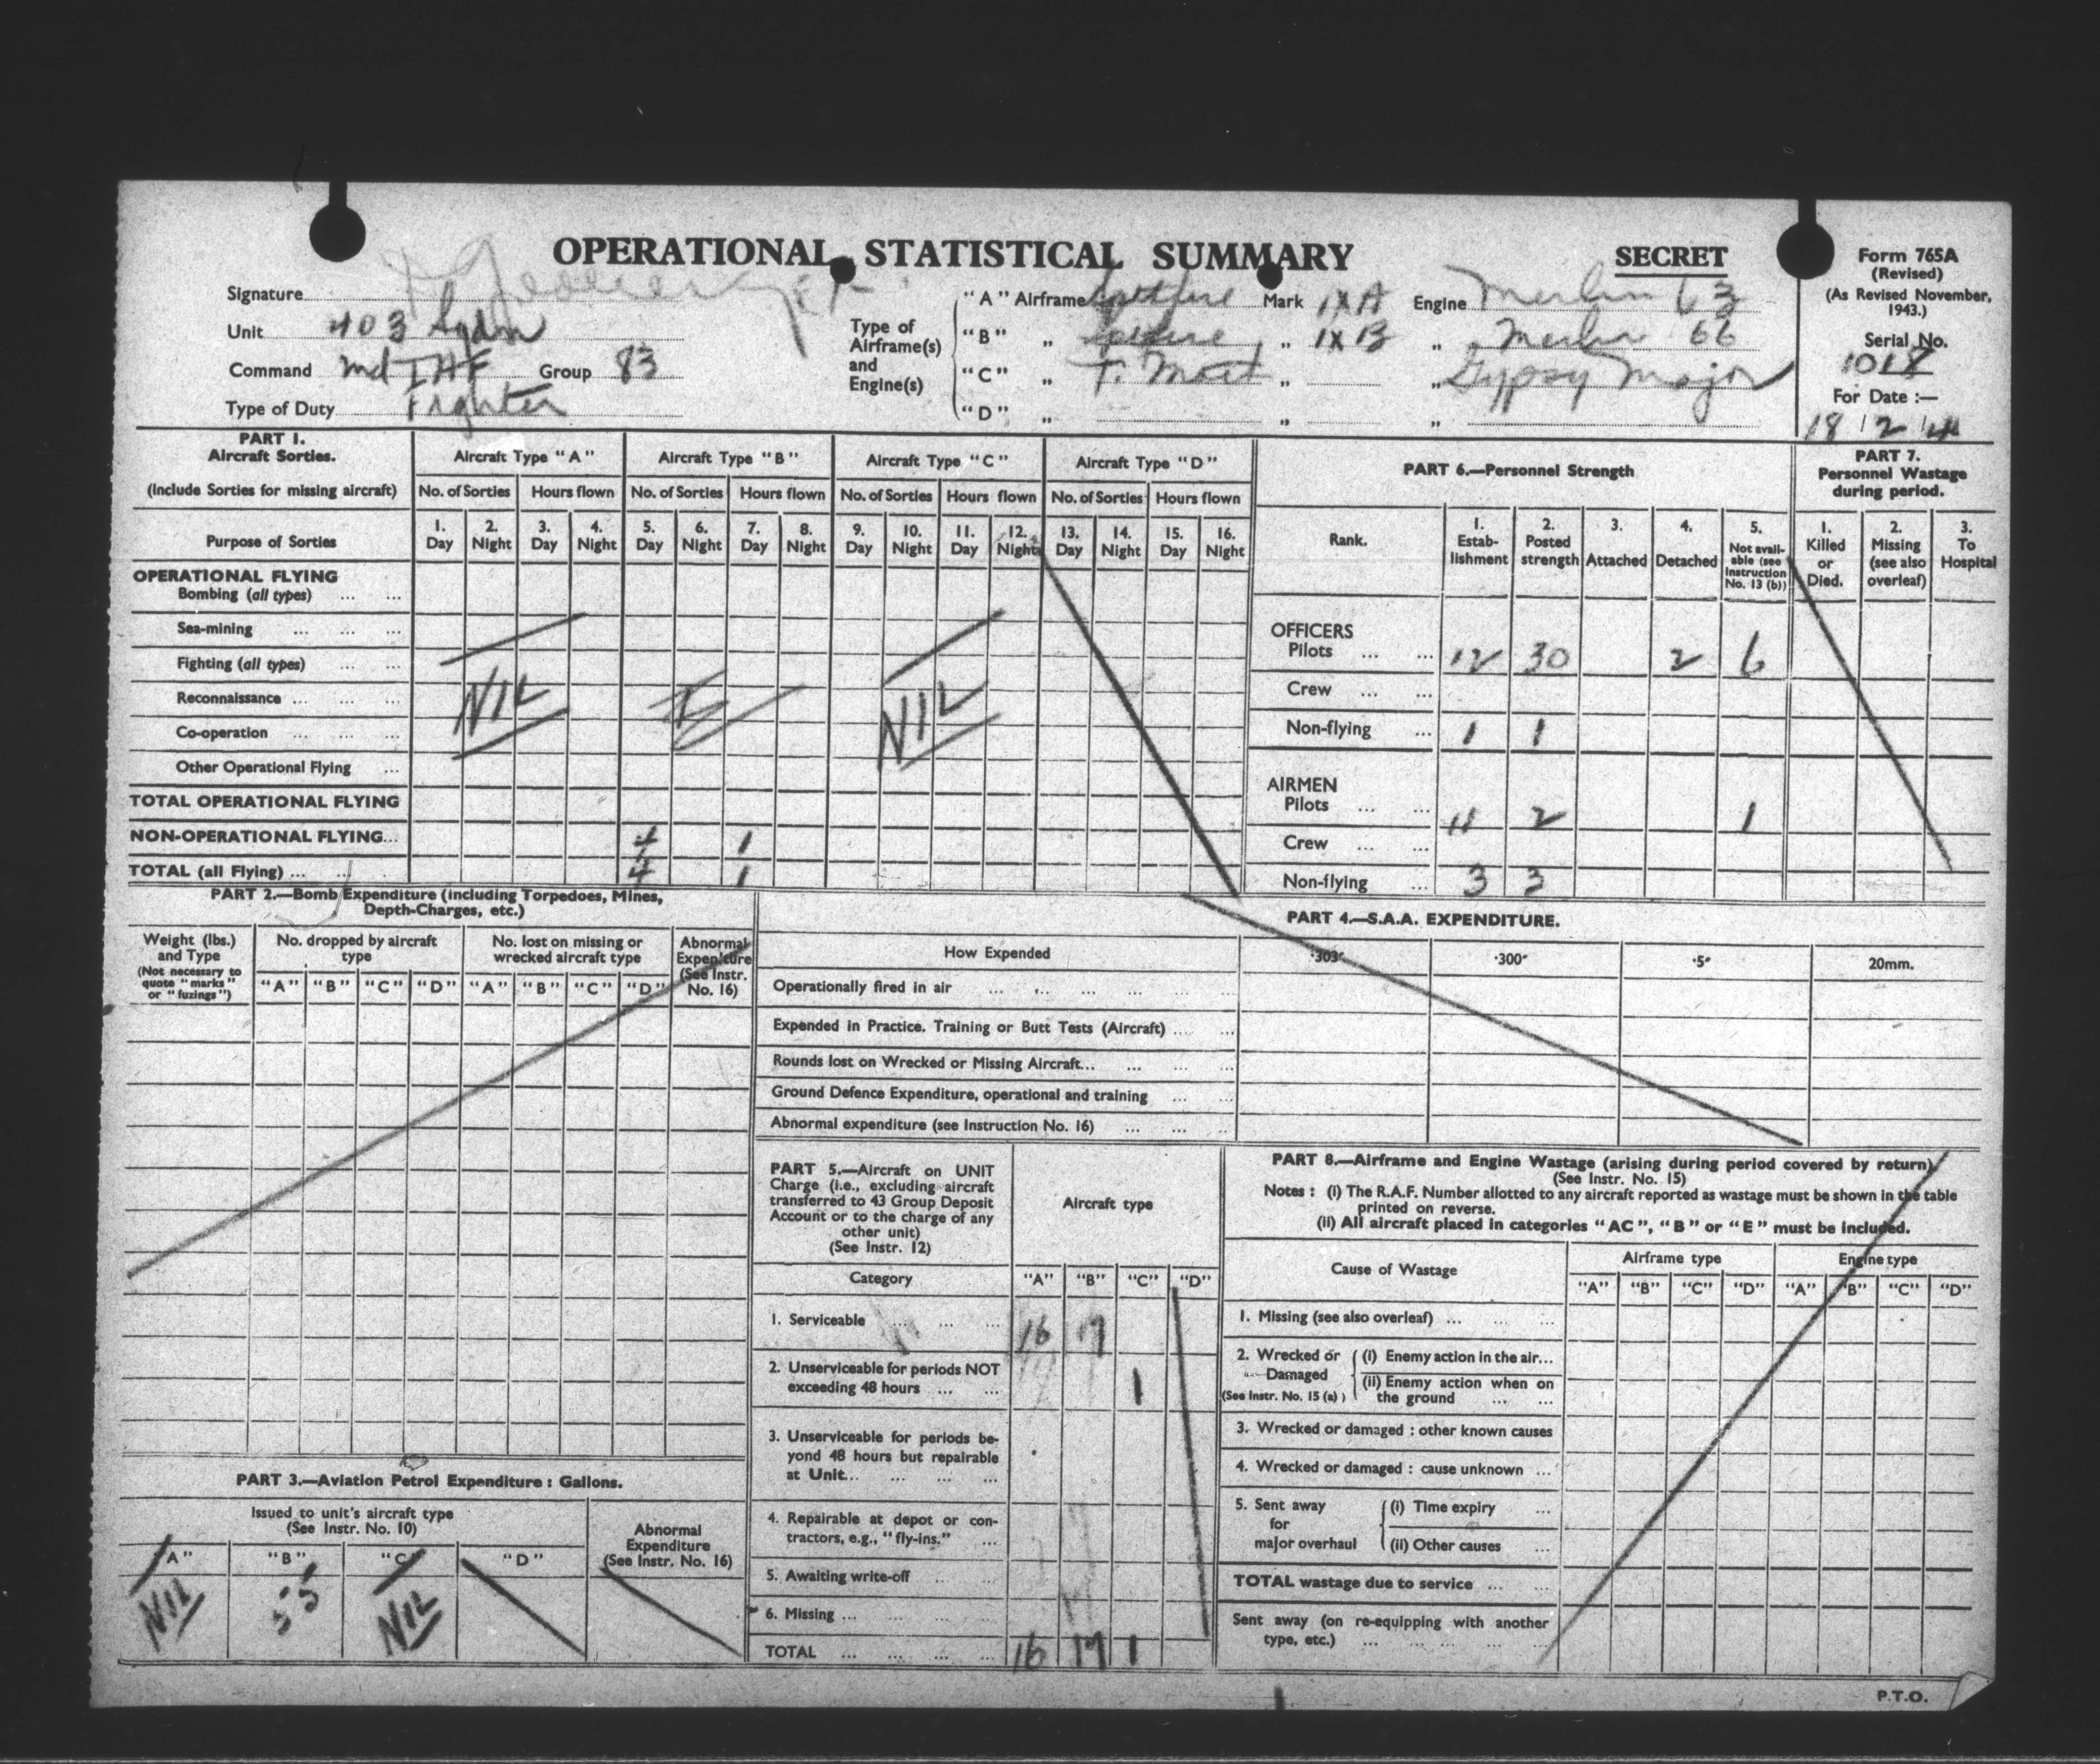 OPERATIONAL STATISTICAL SUMMARY
SECRET
Form 765A
(Revised)
(As Revised November, 1943.)
Serial No.
1018
For Date :—
18 2 4
Signature
Unit 403 Sqdn
Command Group 83
Type of Duty Fighter
Type of Airframe(s) and Engine(s)
"A" Airframe Spitfire Mark IXA Engine Merlin 63
"B" „ Spitfire „ IXB „ Merlin 66
"C" „ T. Moth „ „ Gypsy Major
"D" „ „ „
PART 1.
Aircraft Sorties.
(Include Sorties for missing aircraft)
Aircraft Type "A" Aircraft Type "B" Aircraft Type "C" Aircraft Type "D"
No. of Sorties Hours flown No. of Sorties Hours flown No. of Sorties Hours flown No. of Sorties Hours flown
Purpose of Sorties
1. Day 2. Night 3. Day 4. Night 5. Day 6. Night 7. Day 8. Night 9. Day 10. Night 11. Day 12. Night 13. Day 14. Night 15. Day 16. Night
OPERATIONAL FLYING
Bombing (all types) ... ...
Sea-mining ... ... ...
Fighting (all types) ... ...
Reconnaissance ... ... ...
NIL NIL
Co-operation ... ... ...
Other Operational Flying ...
TOTAL OPERATIONAL FLYING
NON-OPERATIONAL FLYING... 4 1
TOTAL (all Flying) ... ... 4 1
PART 6.—Personnel Strength
Rank.
1. Establishment
2. Posted strength
3. Attached
4. Detached
5. Not available (see Instruction No. 13 (b))
OFFICERS
Pilots ... ... 12 30 2 6
Crew ... ...
Non-flying ... 1 1
AIRMEN
Pilots ... ... 11 2 1
Crew ... ...
Non-flying ... 3 3
PART 7.
Personnel Wastage during period.
1. Killed or Died.
2. Missing (see also overleaf)
3. To Hospital
PART 2.—Bomb Expenditure (including Torpedoes, Mines,
Depth-Charges, etc.)
Weight (lbs.) and Type
(Not necessary to quote "marks" or "fuzings")
No. dropped by aircraft type
"A" "B" "C" "D"
No. lost on missing or wrecked aircraft type
"A" "B" "C" "D"
Abnormal Expen'ture (See Instr. No. 16)
PART 4.—S.A.A. EXPENDITURE.
How Expended ·303″ ·300″ ·5″ 20mm.
Operationally fired in air ... ... ... ... ... ...
Expended in Practice, Training or Butt Tests (Aircraft) ... ...
Rounds lost on Wrecked or Missing Aircraft... ... ... ...
Ground Defence Expenditure, operational and training ... ...
Abnormal expenditure (see Instruction No. 16) ... ... ...
PART 3.—Aviation Petrol Expenditure : Gallons.
Issued to unit's aircraft type
(See Instr. No. 10)
Abnormal Expenditure
(See Instr. No. 16)
"A" "B" "C" "D"
NIL 55 NIL
PART 5.—Aircraft on UNIT
Charge (i.e., excluding aircraft
transferred to 43 Group Deposit
Account or to the charge of any
other unit)
(See Instr. 12)
Aircraft type
Category "A" "B" "C" "D"
1. Serviceable ... ... ... 16 17
2. Unserviceable for periods NOT
exceeding 48 hours ... ... 1
3. Unserviceable for periods be-
yond 48 hours but repairable
at Unit... ... ... ...
4. Repairable at depot or con-
tractors, e.g., "fly-ins." ...
5. Awaiting write-off ... ...
6. Missing ... ... ... ...
TOTAL ... ... ... ... 16 17 1
PART 8.—Airframe and Engine Wastage (arising during period covered by return)
(See Instr. No. 15)
Notes : (i) The R.A.F. Number allotted to any aircraft reported as wastage must be shown in the table
printed on reverse.
(ii) All aircraft placed in categories "AC", "B" or "E" must be included.
Cause of Wastage
Airframe type Engine type
"A" "B" "C" "D" "A" "B" "C" "D"
1. Missing (see also overleaf) ... ... ...
2. Wrecked or Damaged
(See Instr. No. 15 (a) )
(i) Enemy action in the air...
(ii) Enemy action when on
the ground ... ...
3. Wrecked or damaged : other known causes
4. Wrecked or damaged : cause unknown ...
5. Sent away for major overhaul
(i) Time expiry ...
(ii) Other causes ...
TOTAL wastage due to service ... ...
Sent away (on re-equipping with another
type, etc.) ... ... ... ... ...
P.T.O.